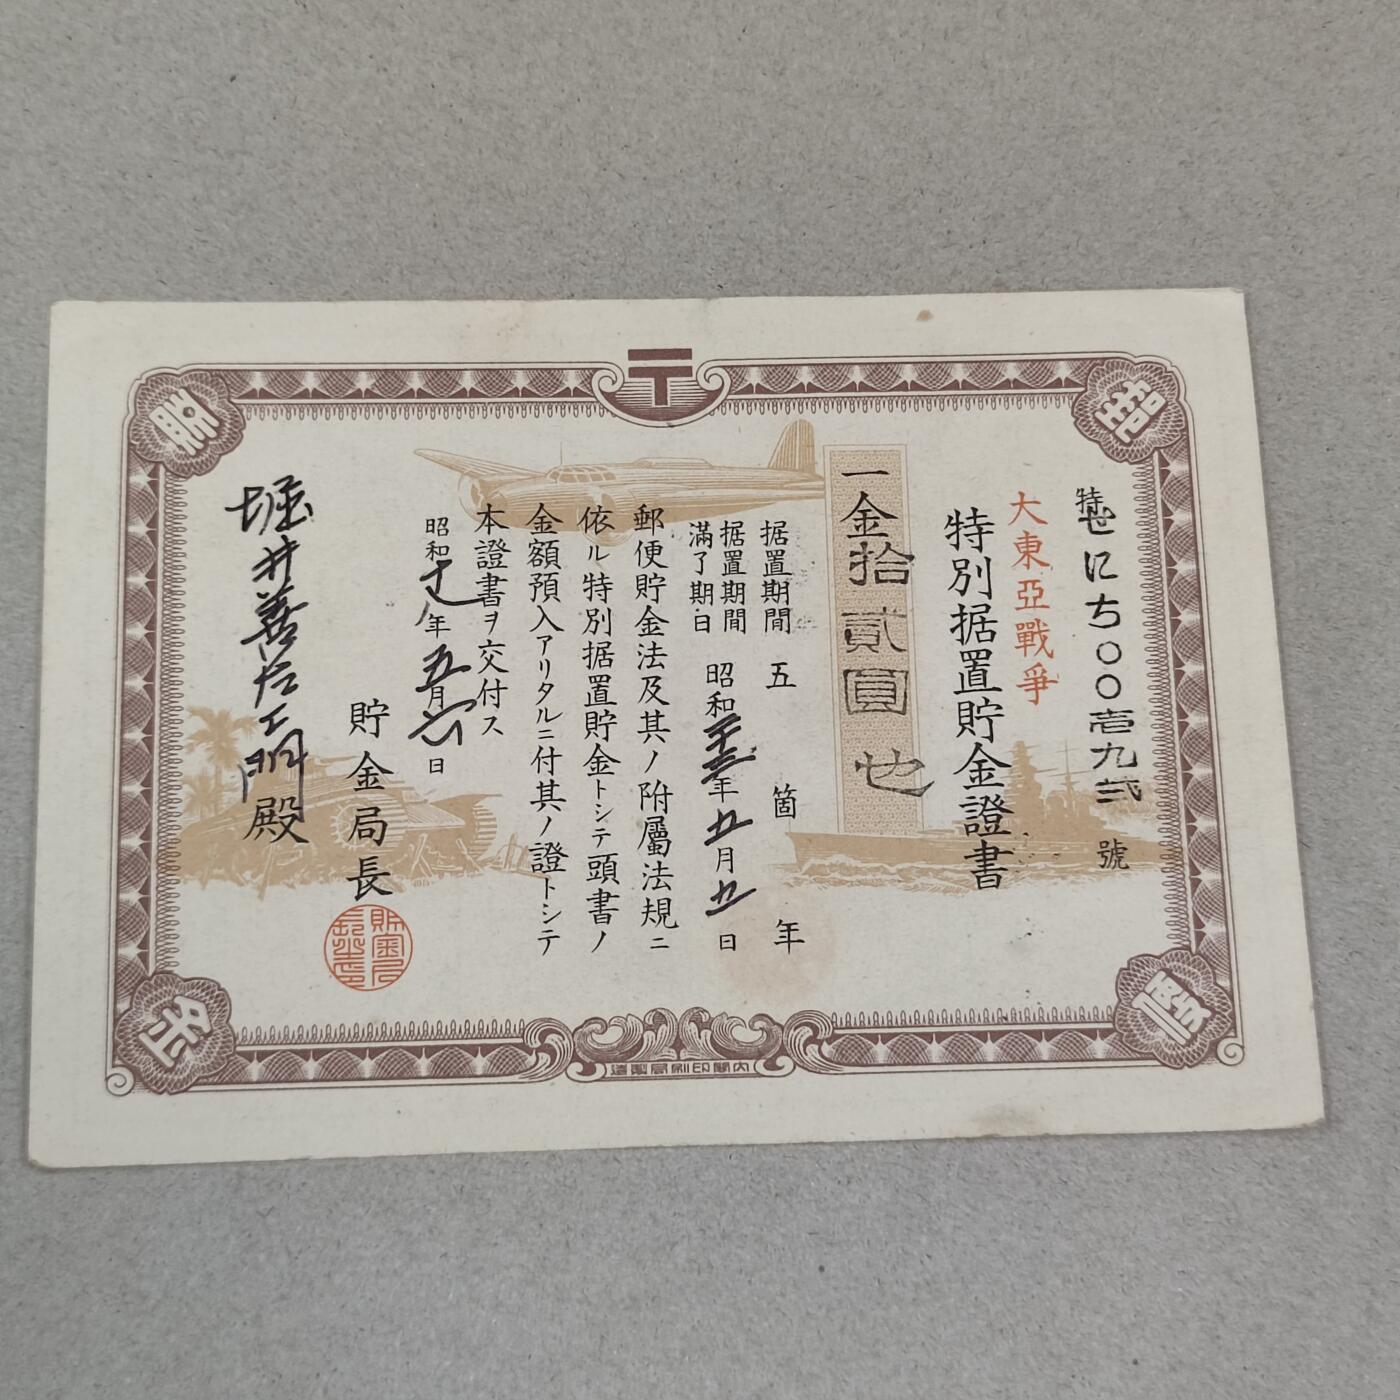 〒
號
大東亞戰爭
特別据置貯金證書
一金拾貳圓也
据置期間 五箇年
据置期間
滿了期日 昭和廿三年五月五日
郵便貯金法及其ノ附屬法規ニ
依ル特別据置貯金トシテ頭書ノ
金額預入アリタルニ付其ノ證トシテ
本證書ヲ交付ス
昭和十八年五月六日
貯金局長
堀井善左エ門殿
内閣印刷局製造